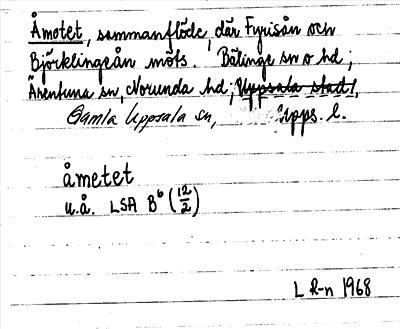 Åmotet, sammanflöde, där Fyrisån och
Björklingeån möts. Bälinge sn o hd;
Ärentuna sn, Norunda hd, Uppsala stad,
Gamla Uppsala sn, Upps. l.
åmetet
u.å. LSA B6 (12/2)
L R-n 1968